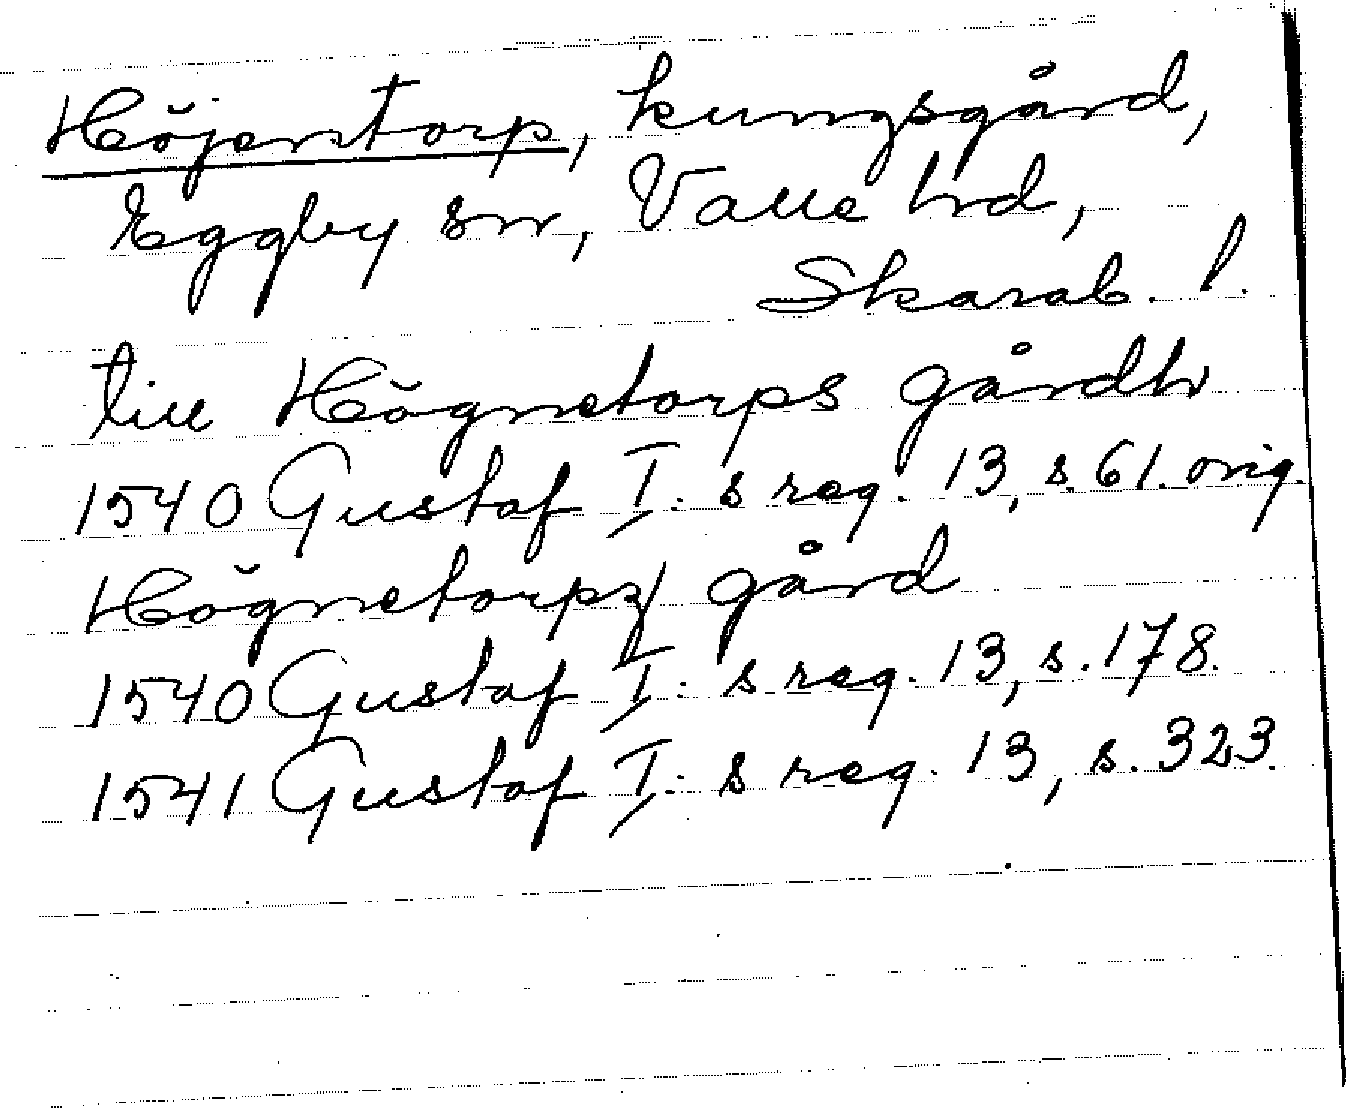 Höjentorp, kungsgård,
Eggby sn, Valle hrd,
Skarab. l.
till Högnetorps gårdh
1540 Gustaf I: s reg. 13, s. 61. orig.
Högnetorpz gård
1540 Gustaf I: s reg. 13, s. 178.
1541 Gustaf I: s reg. 13, s. 323.